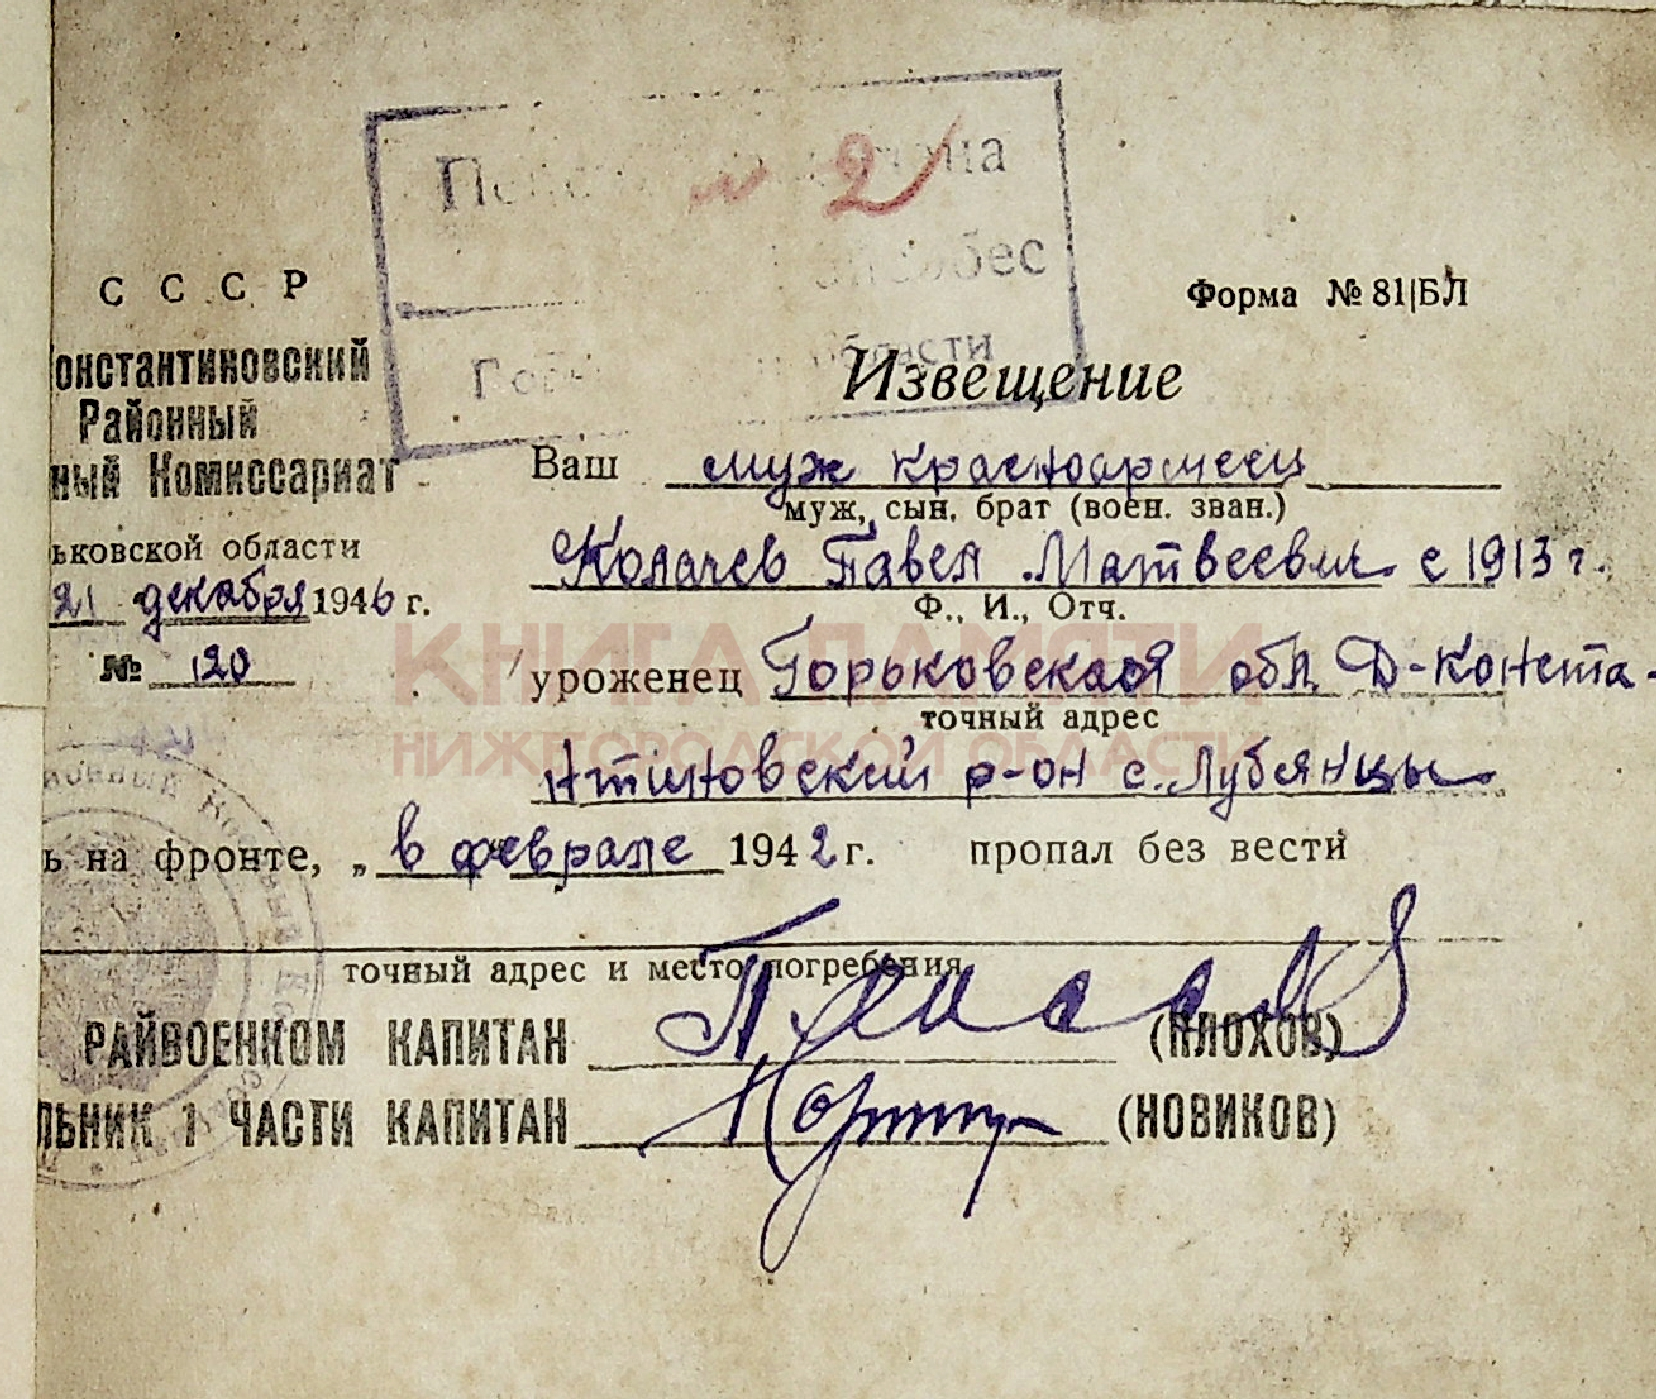 № 2
бес
области
С С С Р
Форма № 81|БЛ
онстантиновский
Извещение
Районный
Ваш муж красноармеец
ный Комиссариат
муж, сын, брат (воен. зван.)
ьковской области
Колачев Павел Матвеевич с 1913 г.
21 декабря 1946 г.
Ф., И., Отч.
КНИГА ПАМЯТИ
№ 120
уроженец Горьковская обл. Д-Конста-
точный адрес
НИЖЕГОРОДСКОЙ ОБЛАСТИ
нтиновский р-он с. Лубянцы
ь на фронте, „ в феврале 1942 г. пропал без вести
точный адрес и место погребения
РАЙВОЕНКОМ КАПИТАН (ПЛОХОВ)
ЛЬНИК 1 ЧАСТИ КАПИТАН (НОВИКОВ)